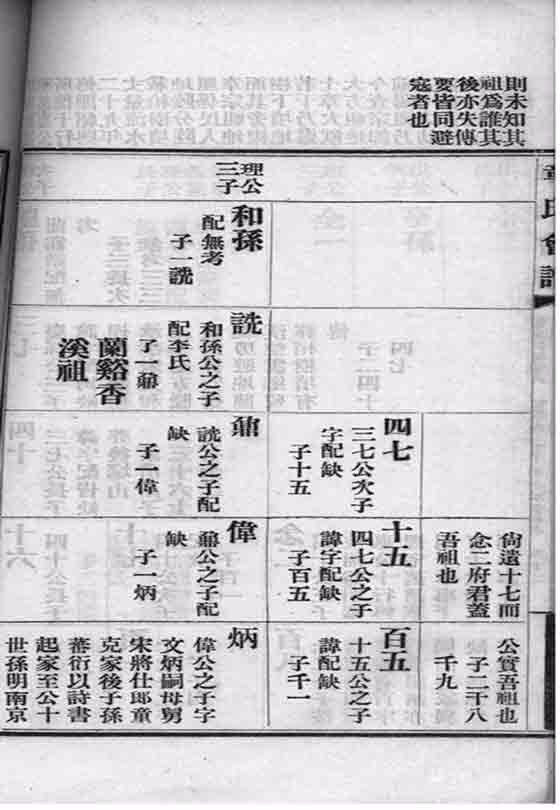 氏會譜
則未知其
祖爲誰其
後亦失傳
要皆同避
寇者也
理公
三子
和孫
配無考
子一詵
詵
和孫公之子
配李氏
子一鼐
蘭谿香
溪祖
四七
三七公次子
字配缺
子十五
鼐
詵公之子配
缺
子一偉
尙遺十七而
念二府君蓋
吾祖也
十五
四七公之子
諱字配缺
子百五
偉
鼐公之子配
缺
子一炳
公實吾祖也
子二十八
千九
百五
十五公之子
諱配缺
子千一
炳
偉公之子字
文炳嗣母舅
宋將仕郎童
克家後子孫
蕃衍以詩書
起家至公十
世孫明南京